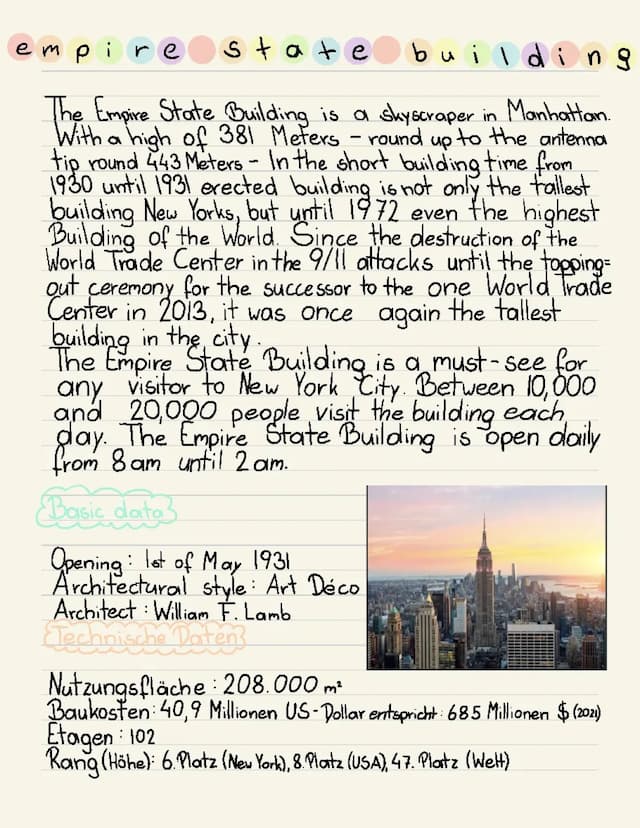 empire state building
The Empire State Building is a skyscraper in Manhattan.
With a high of 381 Meters – round up to the antenna
tip round 443 Meters – In the short building time from
1930 until 1931 erected building is not only the tallest
building New Yorks, but until 1972 even the highest
Building of the World. Since the destruction of the
World Trade Center in the 9/11 attacks until the topping=
out ceremony for the successor to the one World Trade
Center in 2013, it was once again the tallest
building in the city.
The Empire State Building is a must-see for
any visitor to New York City. Between 10,000
and 20,000 people visit the building each
day. The Empire State Building is open daily
from 8am until 2am.
Basic data
Opening: 1st of May 1931
Architectural style: Art Déco
Architect: William F. Lamb
Technische Daten
Nutzungsfläche: 208.000 m²
Baukosten: 40,9 Millionen US-Dollar entspricht: 685 Millionen $ (2021)
Etagen: 102
Rang (Höhe): 6. Platz (New York), 8. Platz (USA), 47. Platz (Welt)